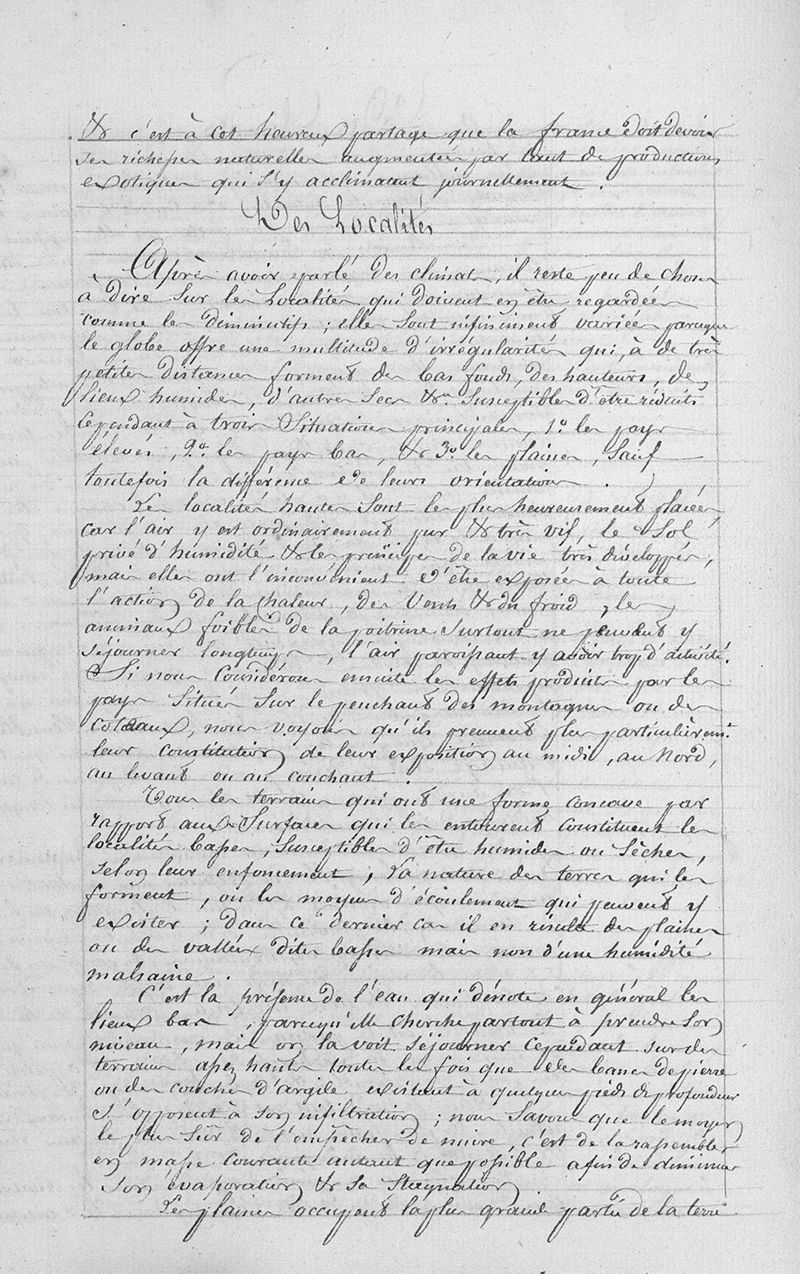 & c'est à cet heureux partage que la france doit devoir
ses richesses naturelles augmentées par tant de productions
exotiques qui s'y acclimatent journellement.
Des Localités
Après avoir parlé des climats, il reste peu de choses
à dire sur les Localités qui doivent en être regardées
comme les diminutifs ; elles sont infiniment variées parceque
le globe offre une multitude d'irrégularités qui, à de très
petites distances forment des bas fonds, des hauteurs, des
lieux humides, d'autres secs &a. Susceptibles d'être réduits
cependant à trois Situations principales, 1o. les pays
élevés, 2o. les pays bas, & 3o. les plaines, Sauf
toutefois la différence de leurs orientations.
Les localités hautes sont le plus heureusement placées
car l'air y est ordinairement pur & très vif, le Sol
privé d'humidité & les principes de la vie très développés,
mais elles ont l'inconvénient d'être exposées à toute
l'action de la chaleur, des Vents & du froid, les
animaux foibles de la poitrine surtout ne peuvent y
séjourner longtemps, l'air paroissant y avoir trop d'activité.
Si nous Considérons ensuite les effets produits par les
pays Situés Sur le penchant des montagnes ou des
coteaux, nous voyons qu'ils prennent plus particulièremt.
leur constitution de leur exposition au midi, au Nord,
au levant ou au couchant.
Tous les terrains qui ont une forme concave par
rapport aux Surfaces qui les entourent constituent les
localités basses, susceptibles d'être humides ou Sèches,
selon leur enfoncement, La nature des terres qui les
forment, ou les moyens d'écoulement qui peuvent y
exister ; dans ce dernier cas il en résulte des plaines
ou des vallées dites basses mais non d'une humidité
malsaine.
C'est la présence de l'eau qui dénote en général les
lieux bas, parcequ'elle cherche partout à prendre son
niveau, mais on la voit séjourner cependant sur des
terrains assez hauts toutes les fois que des bancs de pierre
ou des couches d'argile existent à quelques pieds de profondeur
s'opposent à son infiltration ; nous savons que le moyen
le plus sûr de l'empêcher de nuire, c'est de la rassembler
en masse courante autant que possible afin de diminuer
son évaporation & sa Stagnation.
Les plaines occupent la plus grande partie de la terre